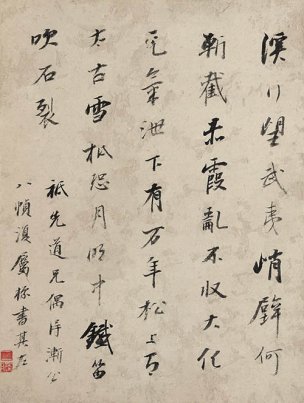 溪行望武夷峭壁何
斬截赤霞亂不收大化
元氣泄下有万年松上有
太古雪秪恐月明中鐵笛
吹石裂
祗先道兄偶得漸公
八幀須屬標書其左